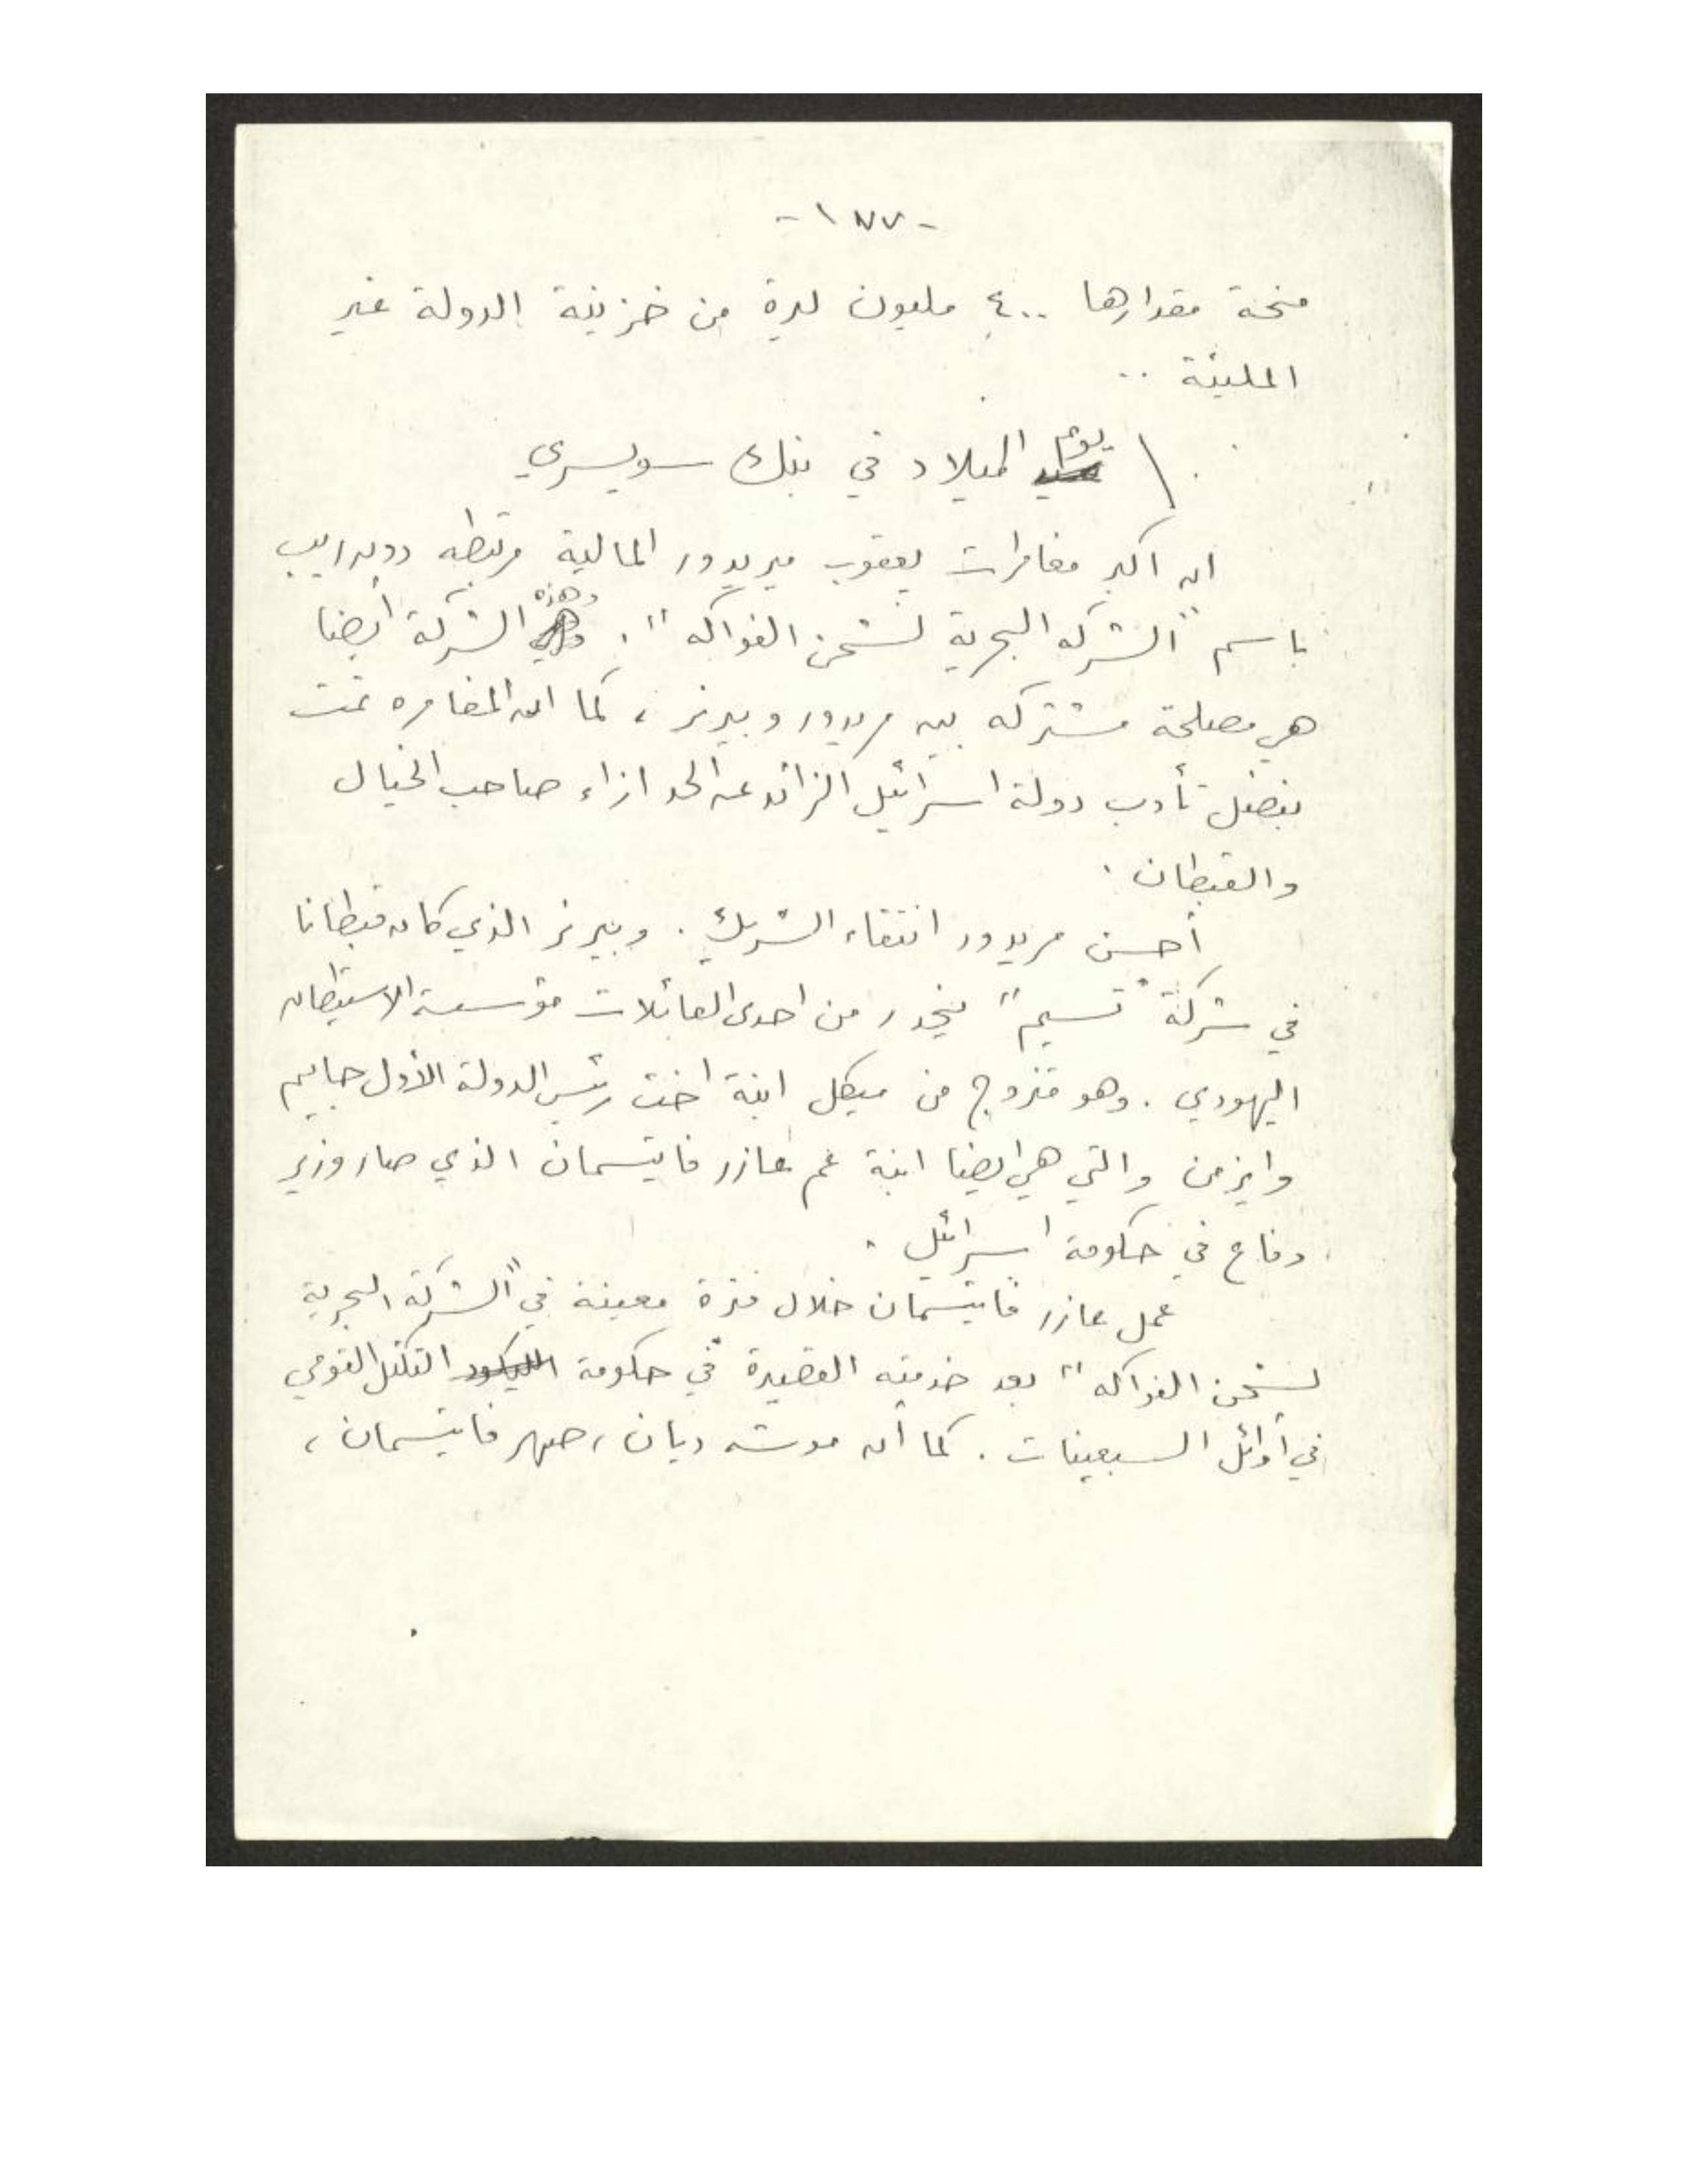 - ١٨٧ -
منحة مقدارها ٤٠٠ مليون ليرة من خزينة الدولة غير
المليئة ..
يوم الميلاد في بنك سويسري
ان اكبر مغامرات يعقوب ميريدور المالية مرتبطه دون ريب
باسم "الشركه البحرية لشحن الفواكه". وهذه الشركة أيضا
هي مصلحة مشتركه بين مريدور وبيرنر، كما ان المغامره تمت
بفضل تأدب دولة اسرائيل الزائد عن الحد ازاء صاحب الخيال
والقبطان.
أحسن مريدور انتقاء الشريك. وبيرنر الذي كان قبطانا
في شركة "تسيم" ينحدر من احدى العائلات مؤسسة الاستيطان
اليهودي. وهو متزوج من ميكل ابنة اخت رئيس الدولة الأول حاييم
وايزمن والتي هي ايضا ابنة عم عازر فايتسمان الذي صار وزير
دفاع في حكومة اسرائيل.
عمل عازر فايتسمان خلال فترة معينة في "الشركة البحرية
لشحن الفواكه" بعد خدمته القصيرة في حكومة الليكود التكتل القومي
في أوائل السبعينات. كما أن موشه ديان، صهر فايتسمان،